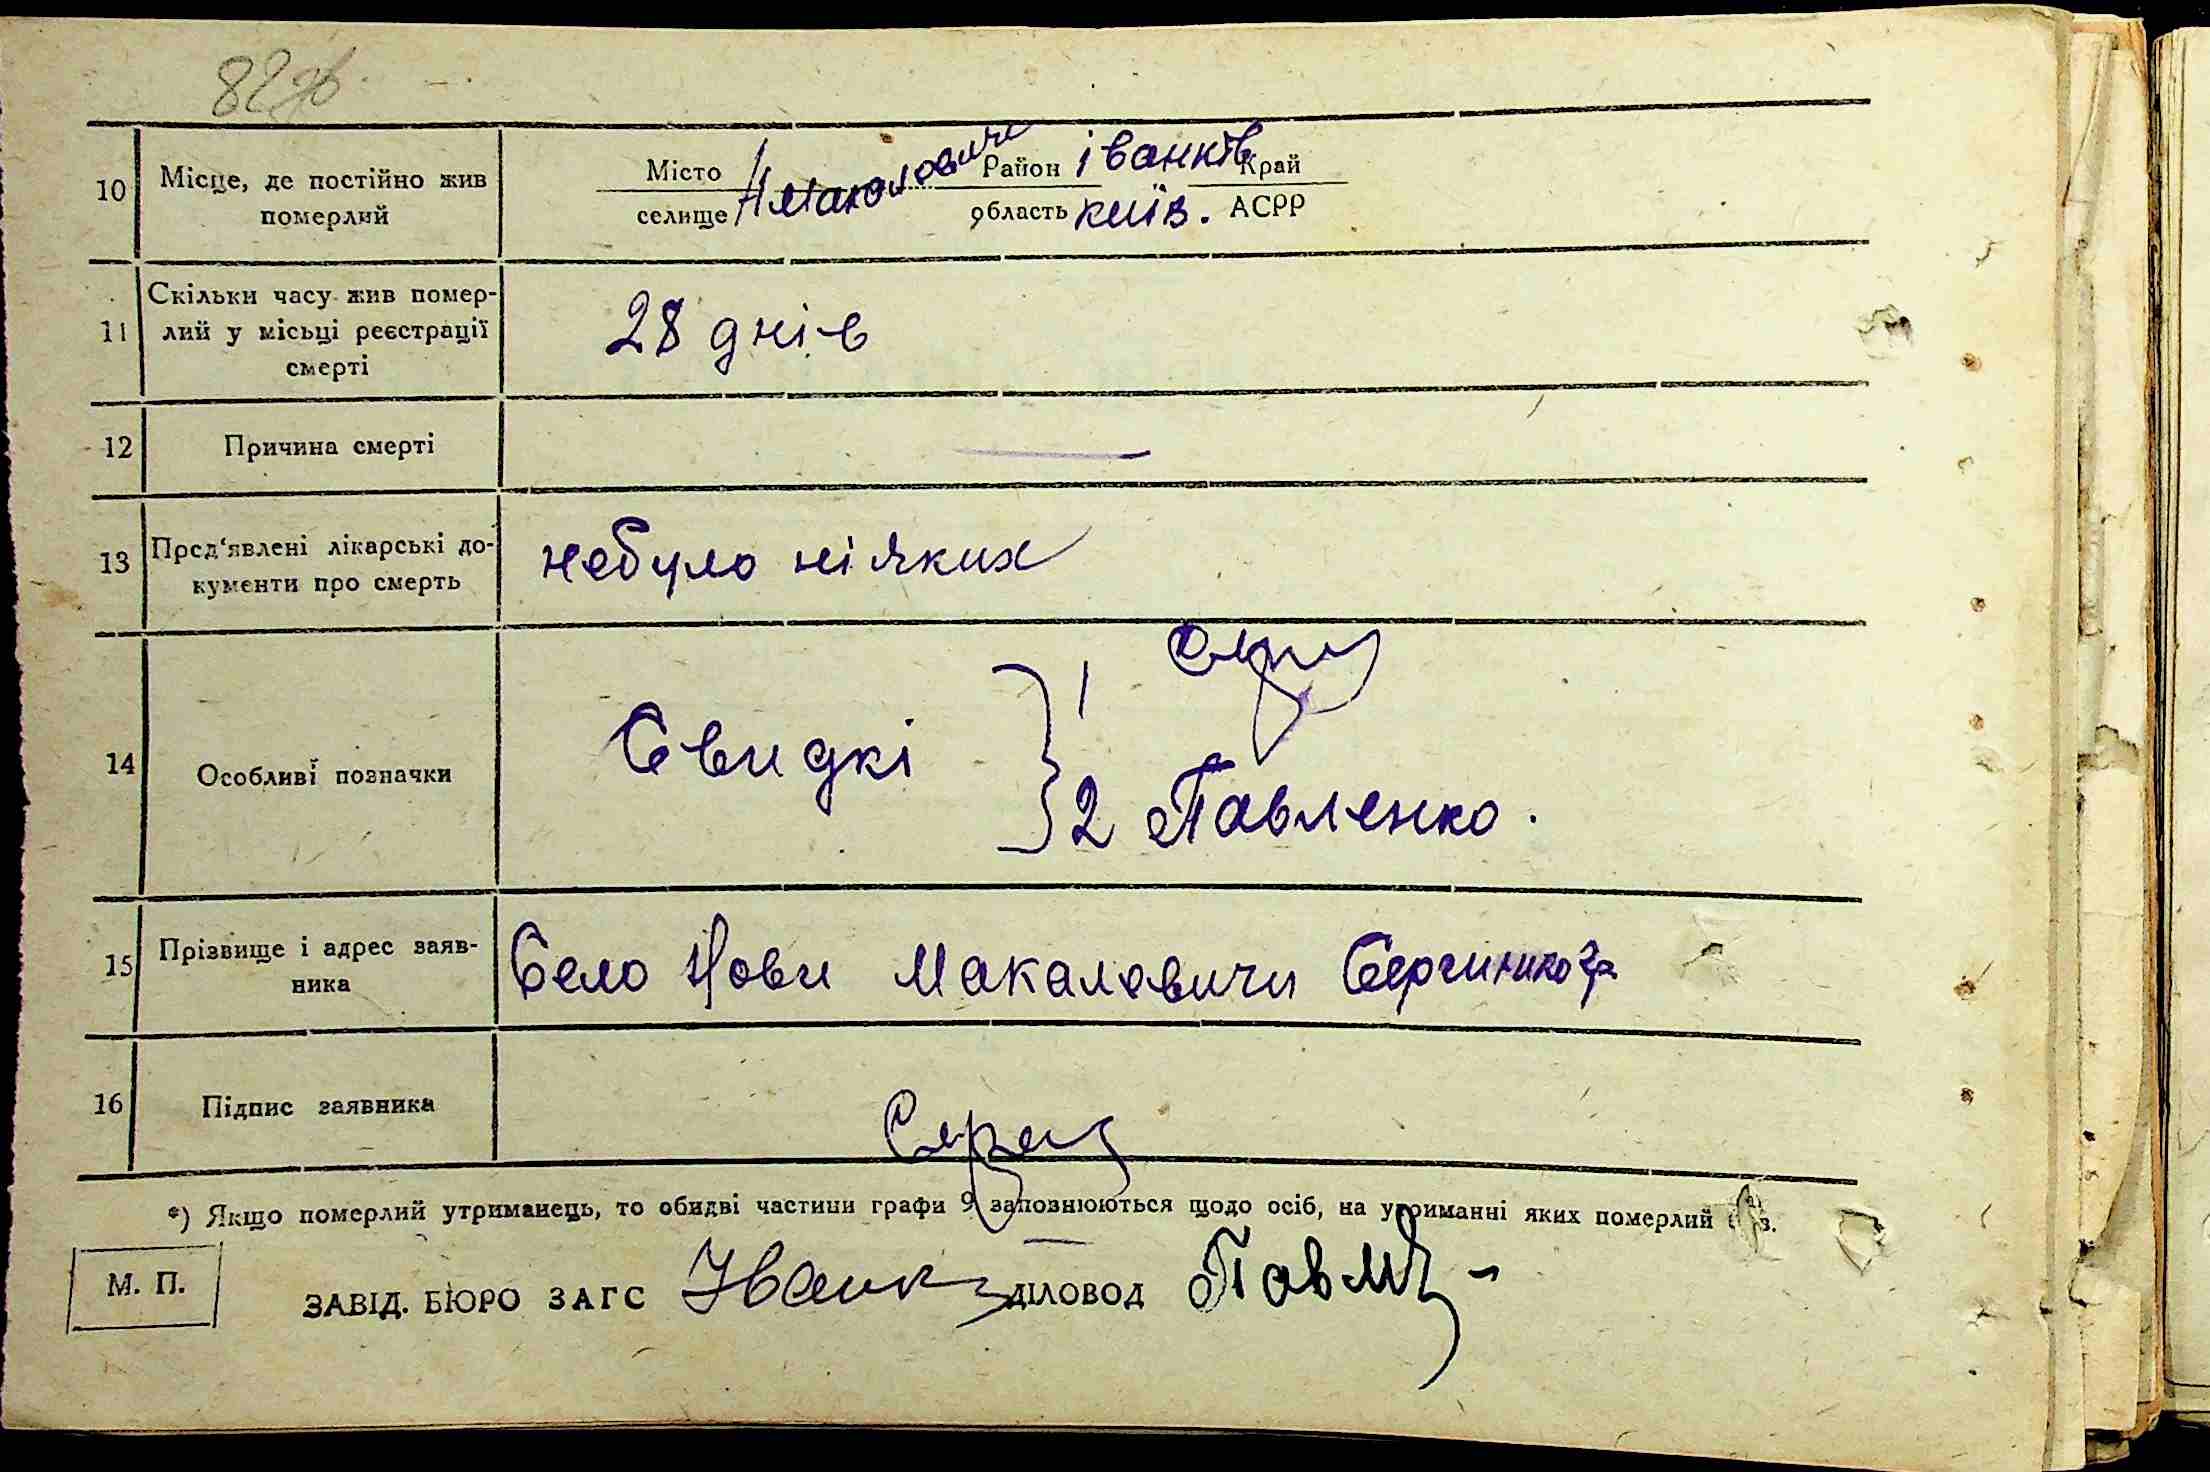 82зв.
10 Місце, де постійно жив
померлий
Місто Район іванків Край
селище Н макаловичи область київ. АСРР
11 Скільки часу жив помер-
лий у місьці реєстрації
смерті
28 днів
12 Причина смерті —
13 Пред'явлені лікарські до-
кументи про смерть
небуло ніяких
14 Особливі позначки
Свидкі } 1
2 Павленко.
15 Прізвище і адрес заяв-
ника
Село Нови Макаловичи
16 Підпис заявника
*) Якщо померлий утриманець, то обидві частини графи 9 заповнюються щодо осіб, на утриманні яких померлий
М. П.
ЗАВІД. БЮРО ЗАГС ДІЛОВОД